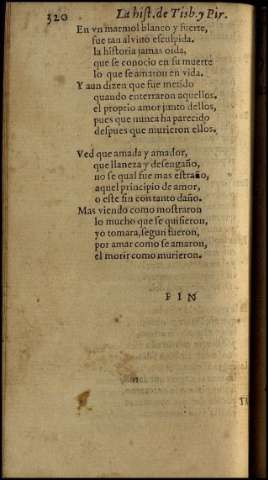 320 La hist. de Tisb. y Pir.
En vn marmol blanco y fuerte,
fue tan al viuo esculpida.
la historia jamas oida,
que se conocio en su muerte
lo que se amaron en vida.
Y aun dizen que fue metido
quando enterraron aquellos.
el proprio amor junto dellos,
pues que nunca ha parecido
despues que murieron ellos.
Ved que amada y amador,
que llaneza y desengaño,
no se qual fue mas estraño,
aquel principio de amor,
o este fin con tanto daño.
Mas viendo como mostraron
lo mucho que se quisieron,
yo tomara, segun fueron,
por amar como se amaron,
el morir como murieron.
FIN